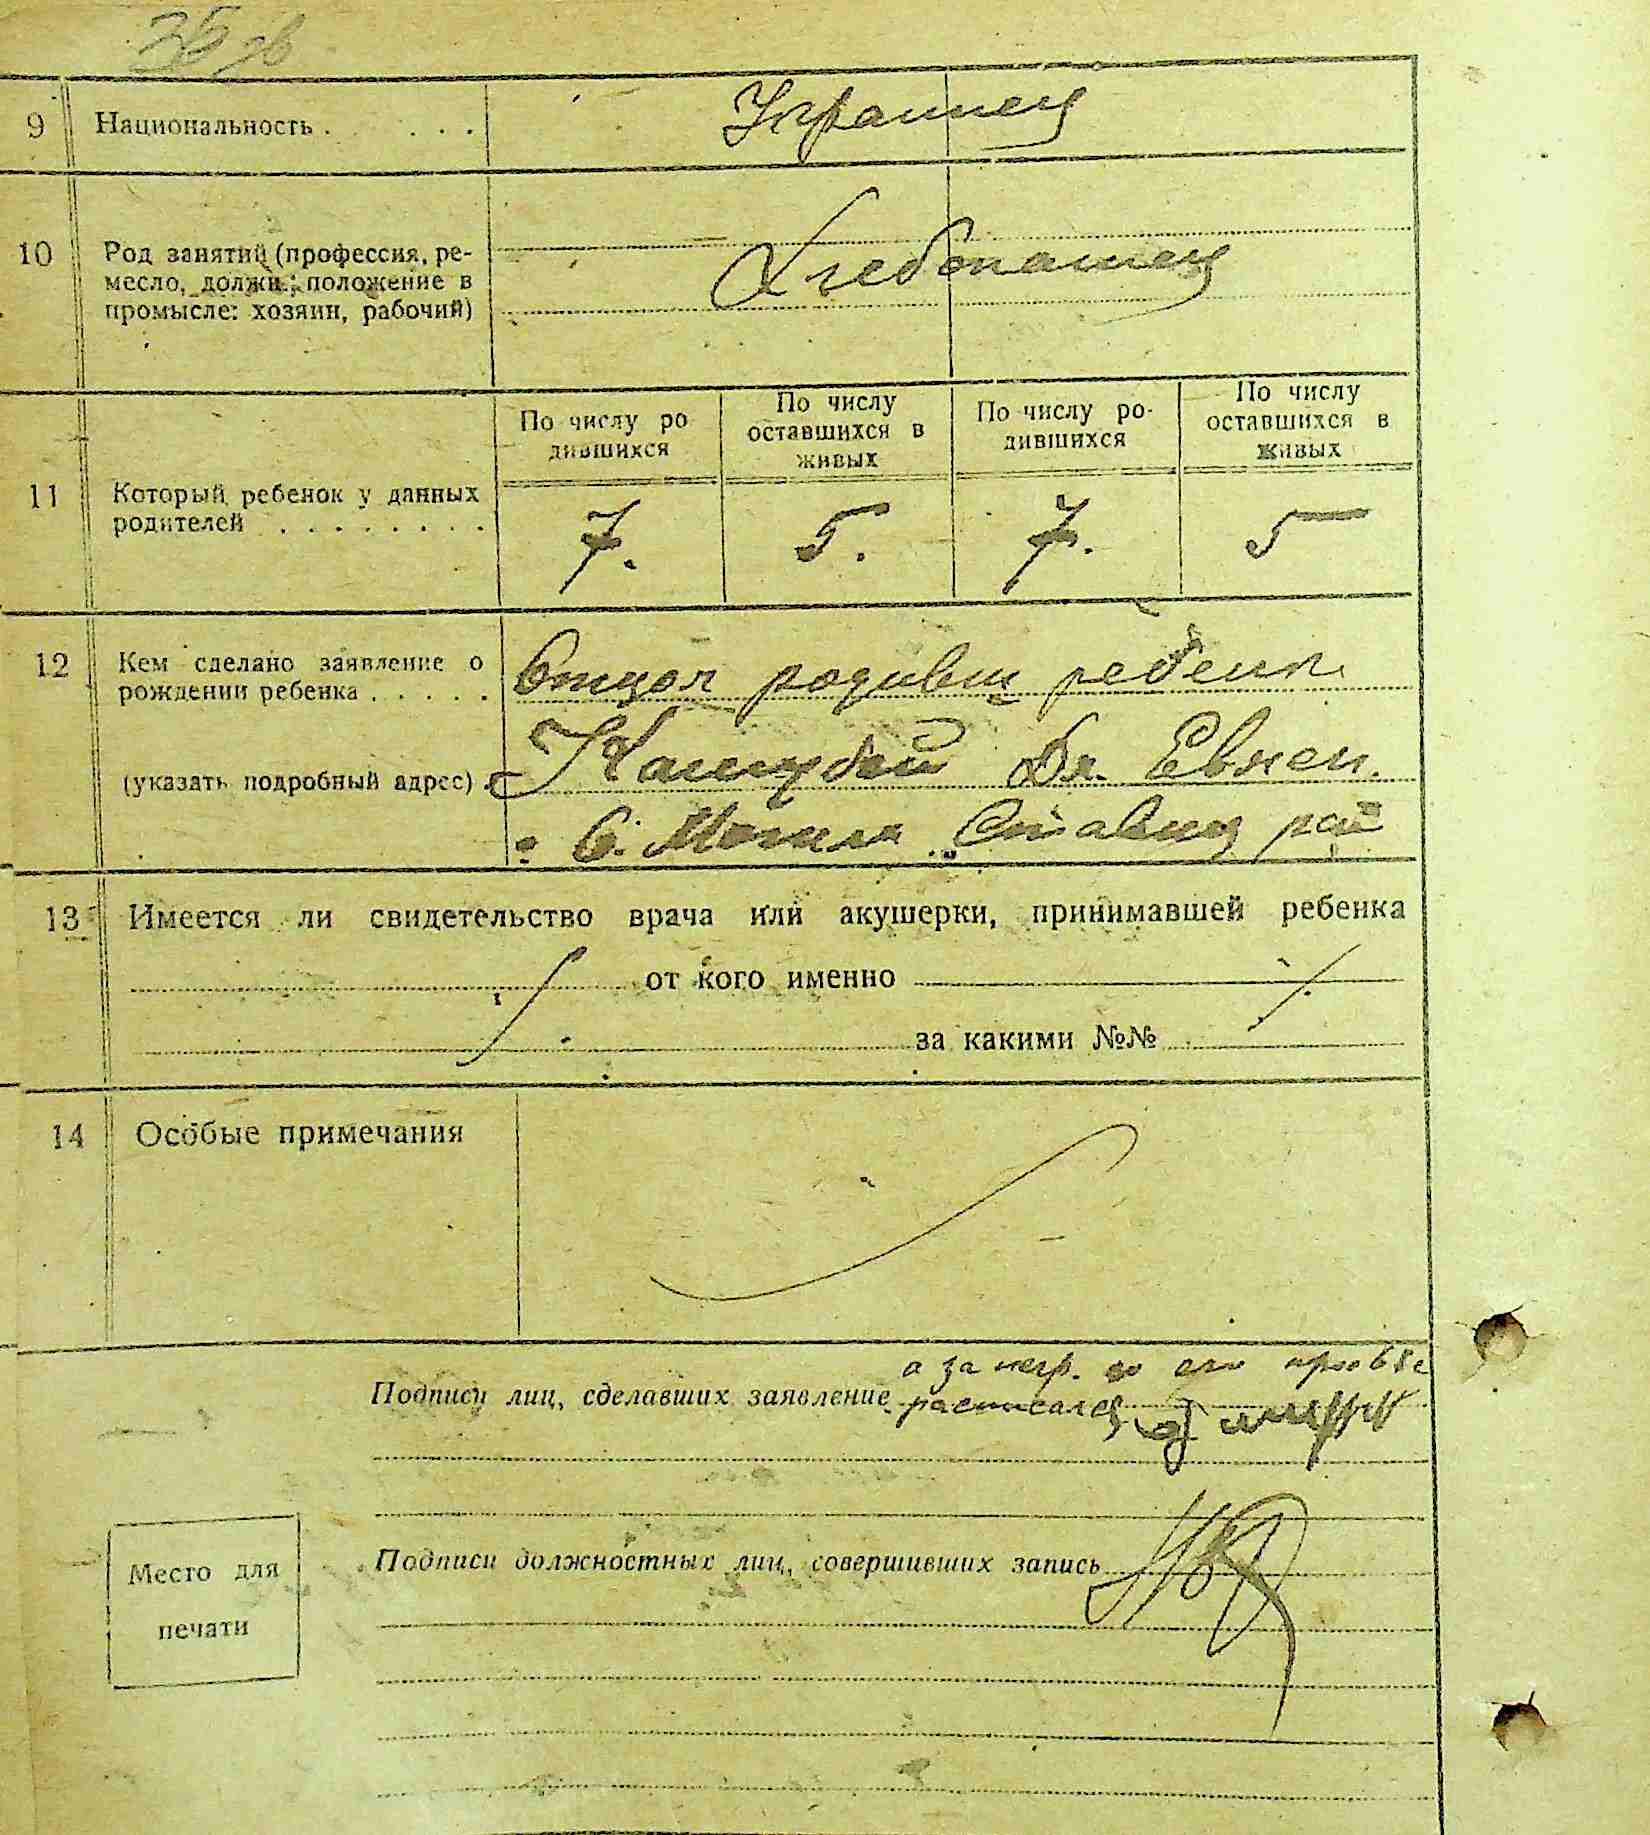 35 об
9 Национальность . . . . Украинец
10 Род занятий (профессия, ре-
месло, должн.; положение в
промысле: хозяин, рабочий)
Хлебопашец
По числу ро
дившихся
По числу
оставшихся в
живых
По числу ро-
дившихся
По числу
оставшихся в
живых
11 Который ребенок у данных
родителей . . . . . . . .
7. 5. 7. 5
12 Кем сделано заявление о
рождении ребенка . . . . .
Отцом родивш ребенк
(указать подробный адрес) .
Дм. Евген.
с. рай
13 Имеется ли свидетельство врача или акушерки, принимавшей ребенка
от кого именно
за какими №№
14 Особые примечания
а за негр. по его просьбе
Подписи лиц, сделавших заявление расписался
Подписи должностных лиц, совершивших запись
Место для
печати